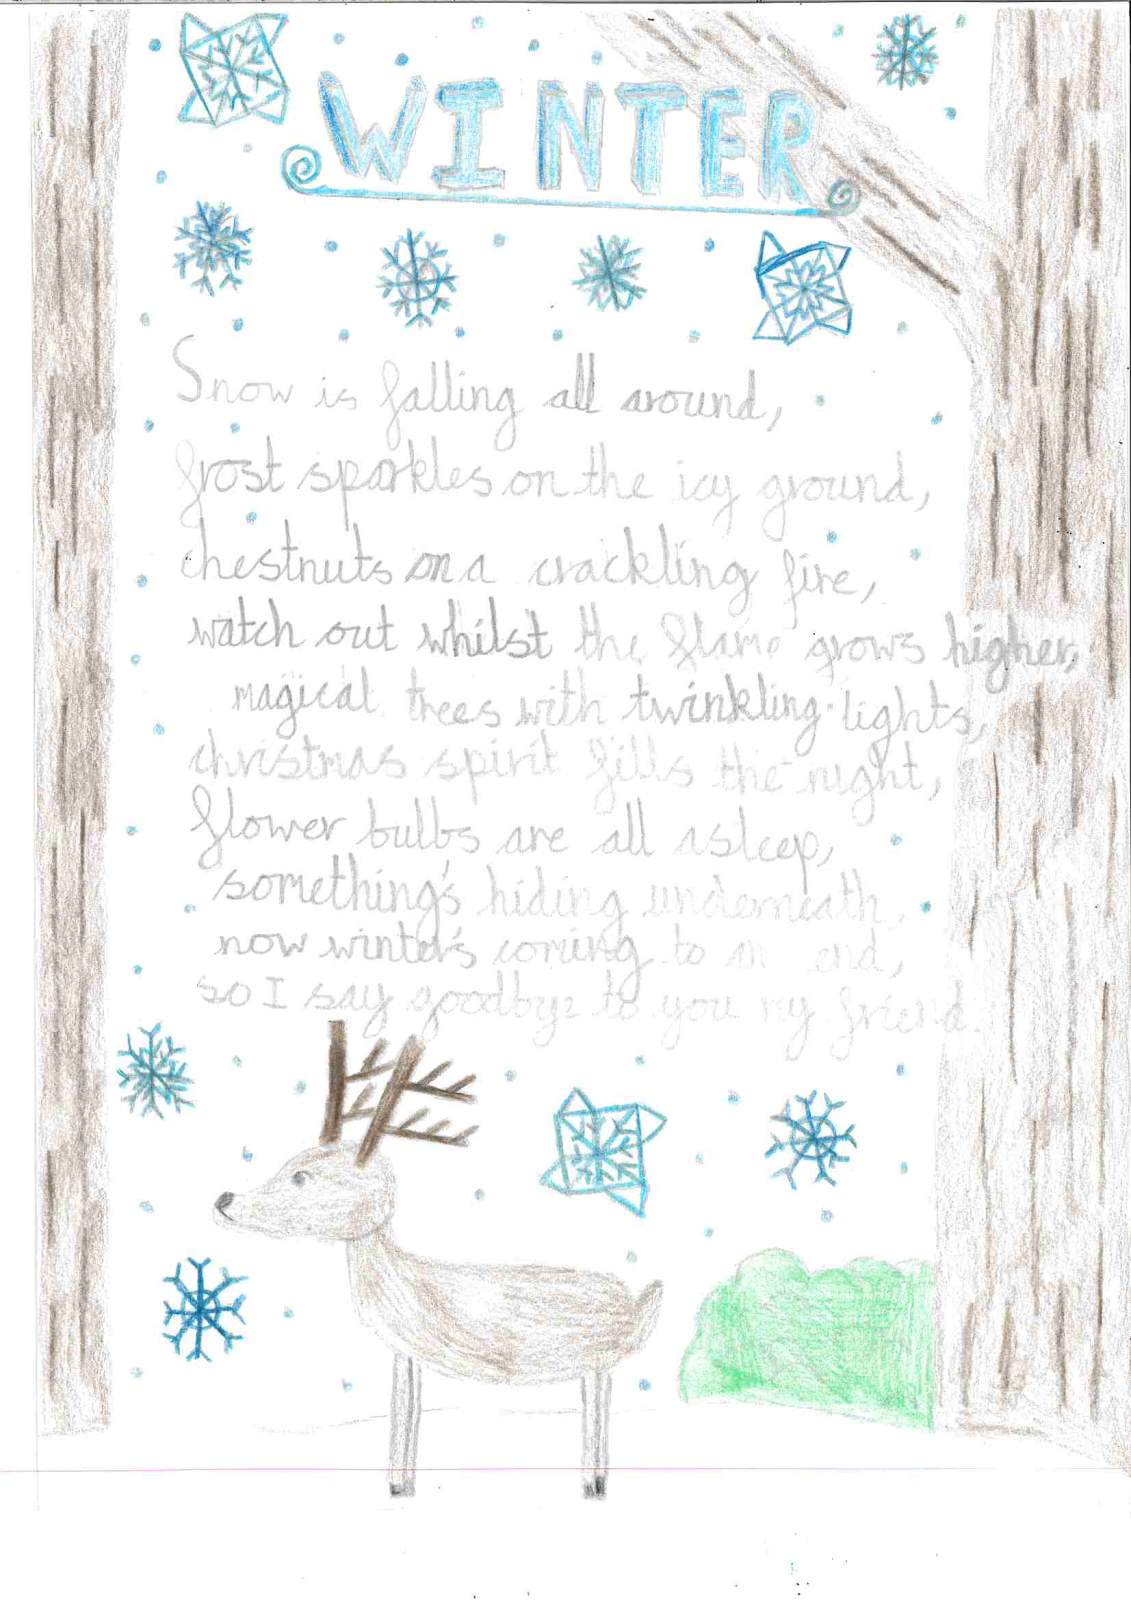 WINTER
Snow is falling all around,
frost sparkles on the icy ground,
chestnuts on a crackling fire,
watch out whilst the flame grows higher,
magical trees with twinkling lights,
christmas spirit fills the night,
flower bulbs are all asleep,
something's hiding underneath,
now winter's coming to an end,
so I say goodbye to you my friend.